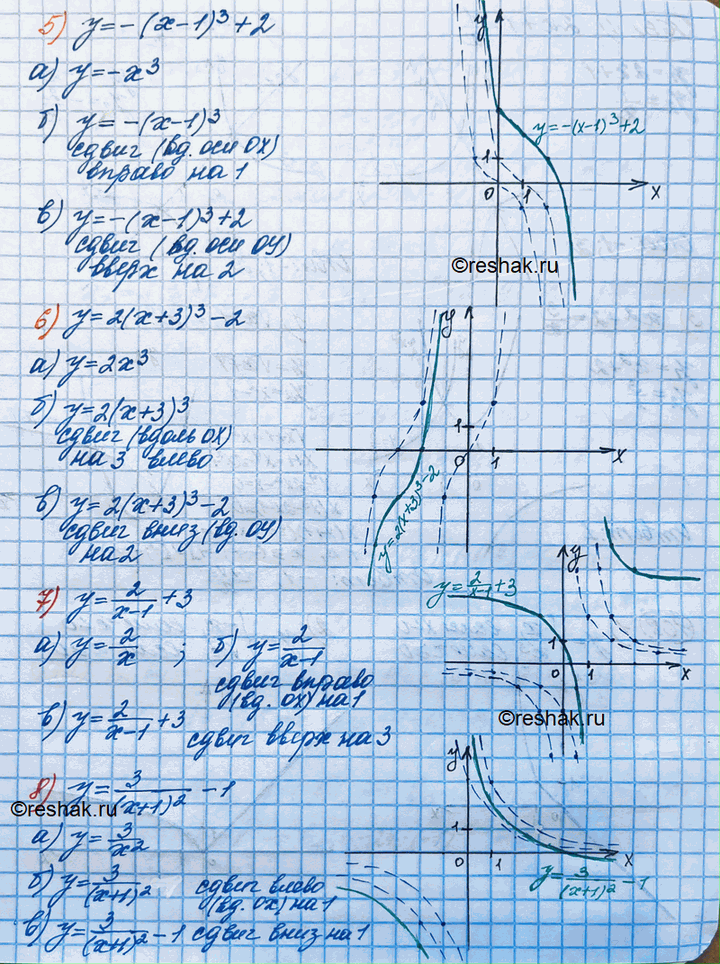 5) y=-(x-1)³+2
а) y=-x³
б) y=-(x-1)³
сдвиг (вд. оси OX)
вправо на 1
в) y=-(x-1)³+2
сдвиг (вд. оси OY)
вверх на 2
y
y=-(x-1)³+2
1
0
1
x
©reshak.ru
6) y=2(x+3)³-2
а) y=2x³
б) y=2(x+3)³
сдвиг (вдоль OX)
на 3 влево
в) y=2(x+3)³-2
сдвиг вниз (вд. OY)
на 2
y
1
0
1
x
y=2(x+3)³-2
7) y=2/(x-1)+3
а) y=2/x ; б) y=2/(x-1)
сдвиг вправо
(вд. OX) на 1
в) y=2/(x-1)+3
сдвиг вверх на 3
y
y=2/(x-1)+3
1
0
1
x
©reshak.ru
8) y=3/(x+1)²-1
©reshak.ru
а) y=3/x²
б) y=3/(x+1)² сдвиг влево
(вд. OX) на 1
в) y=3/(x+1)²-1 сдвиг вниз на 1
y
1
0
1
x
y=3/(x+1)²-1